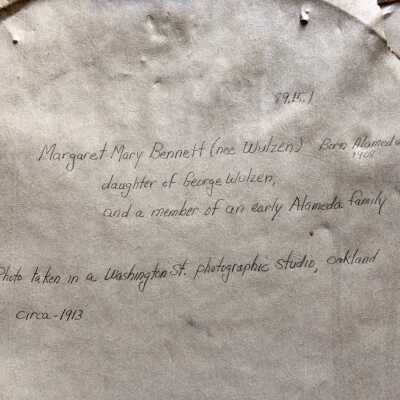 89.15.1
Margaret Mary Bennett (nee Wulzen) Born Alameda
1908
daughter of George Wulzen,
and a member of an early Alameda family
Photo taken in a Washington St. photographic studio, Oakland
circa-1913